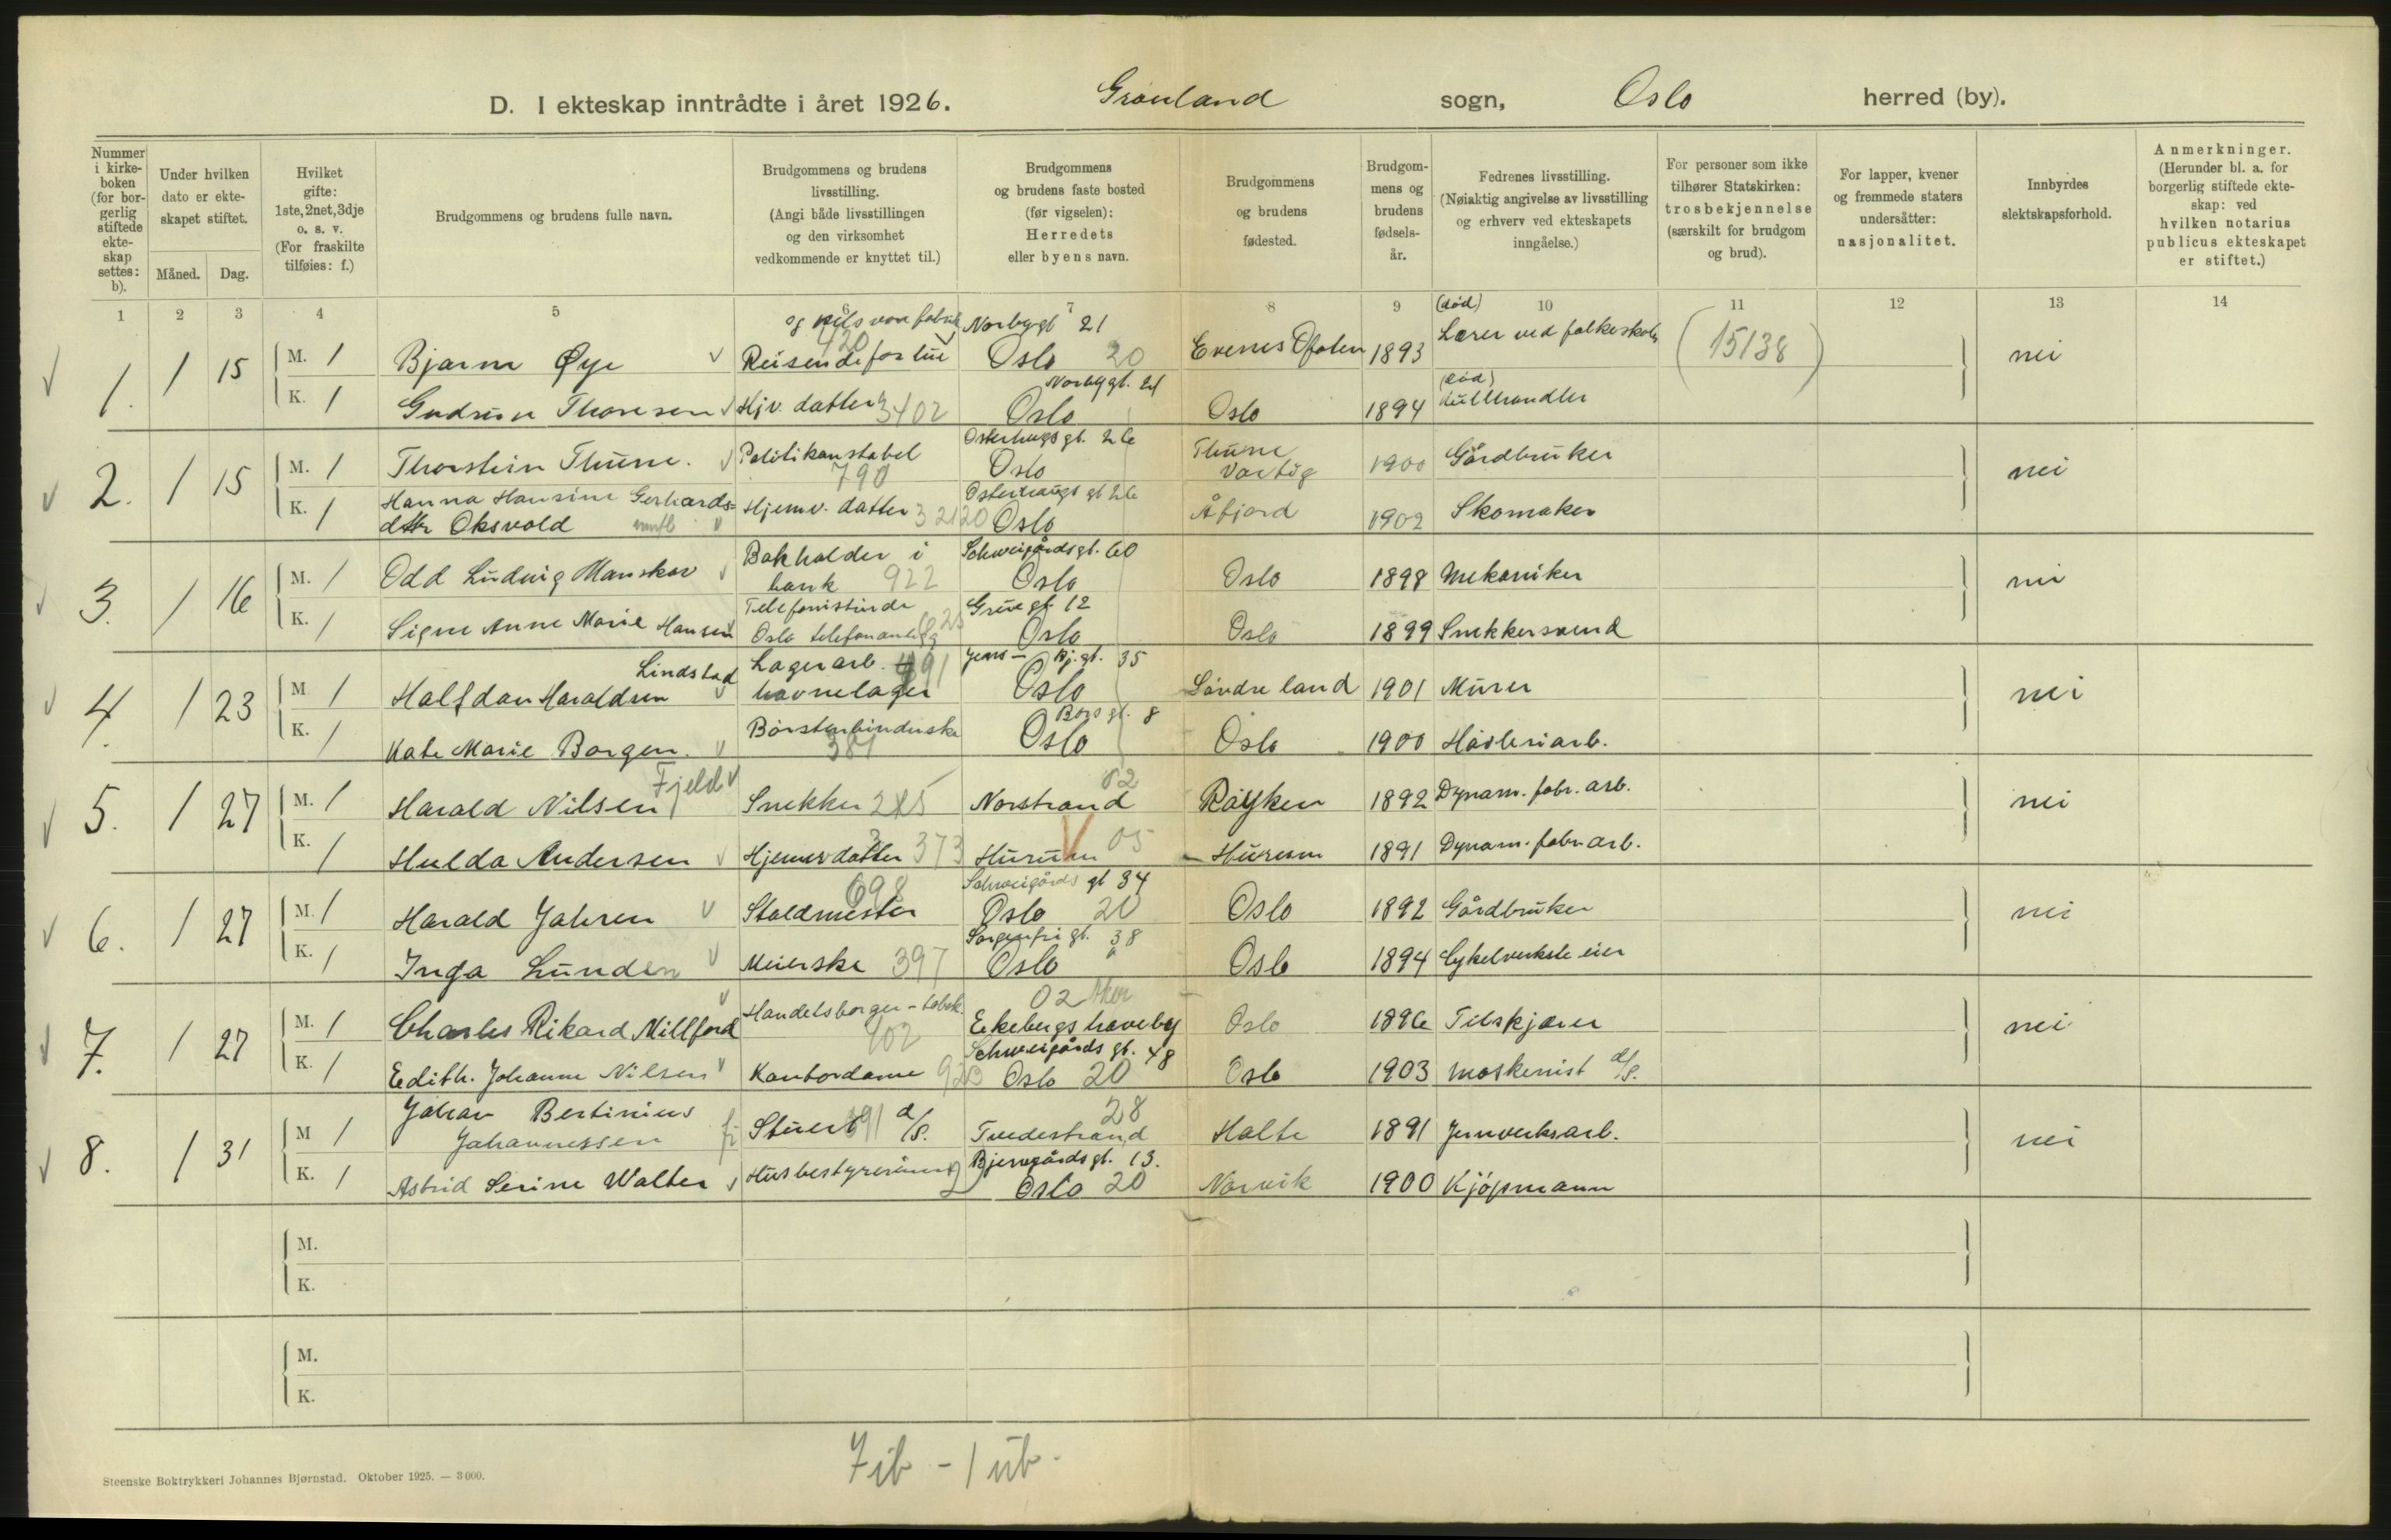 D. I ekteskap inntrådte i året 1926. Grønland sogn, Oslo herred (by).
Nummer i kirke- boken (for bor- gerlig stiftede ekte- skap settes: b).
Under hvilken dato er ekte- skapet stiftet.
Måned. Dag.
Hvilket gifte: 1ste, 2net, 3dje o. s. v. (For fraskilte tilføies: f.)
Brudgommens og brudens fulle navn.
Brudgommens og brudens livsstilling. (Angi både livsstillingen og den virksomhet vedkommende er knyttet til.)
Brudgommens og brudens faste bosted (før vigselen): Herredets eller byens navn.
Brudgommens og brudens fødested.
Brudgom- mens og brudens fødsels- år.
Fedrenes livsstilling. (Nøiaktig angivelse av livsstilling og erhverv ved ekteskapets inngåelse.)
For personer som ikke tilhører Statskirken: trosbekjennelse (særskilt for brudgom og brud).
For lapper, kvener og fremmede staters undersåtter: nasjonalitet.
Innbyrdes slektskapsforhold.
Anmerkninger. (Herunder bl. a. for borgerlig stiftede ekte- skap: ved hvilken notarius publicus ekteskapet er stiftet.)
1 2 3 4 5 6 7 8 9 10 11 12 13 14
og fabrik Norbygt 21 (død)
1. 1 15 M. 1 Bjarne Øye Reisende for 420 Oslo 20 Evenes Ofoten 1893 Lærer ved folkeskole (15138) nei
Norbygt. 21 (død)
K. 1 Gudrun Thoresen Hjv. datter 3402 Oslo Oslo 1894 Kullhandler
Østerhugsgt. 26
2. 1 15 M. 1 Thorstein Thune. Politikonstabel 790 Oslo Thune Varteig 1900 Gårdbruker nei
Østerhaugs gt 26
K. 1 Hanna Hansine Gerhards= dttr Oksvold Hjemv. datter 3 2120 Oslo Åfjord 1902 Skomaker
Schweigårdsgt. 60
3. 1 16 M. 1 Odd Ludvig Hanskov Bokholder i bank 922 Oslo Oslo 1898 Mekaniker nei
Grue gt. 12
K. 1 Signe Anne Marie Hansen Telefonistinde Oslo telefonanlegg Oslo Oslo 1899 Snekkersvend
Jens Bj. gt. 35
4. 1 23 M. 1 Halfdan Haraldsen Lindstad Lagerarb. havnelager Oslo Søndre land 1901 Murer nei
Bors gt. 8
K. 1 Kate Marie Borgen Børstenbinderske 381 Oslo Oslo 1900 Høvleriarb.
5. 1 27 M. 1 Harald Nilsen Fjeld Snekker Norstrand 02 Røyken 1892 Dynam. fabr. arb. nei
K. 1 Hulda Andersen Hjemv datter 3 373 Hurum 05 Hurum 1891 Dynam. fabr arb.
Schweigårds gt 34
6. 1 27 M. 1 Harald Jahren Staldmester 698 Oslo 20 Oslo 1892 Gårdbruker nei
Sorgenfri gt. 38
K. 1 Inga Lunden Meierske 397 Oslo Oslo 1894 Cykelverksteeier
02 Aker
7. 1 27 M. 1 Charles Rikard Millford Handelsborger - tobak. 402 Ekebergs haveby Oslo 1896 Tilskjærer nei
Schweigårds gt. 48
K. 1 Edith. Johanne Nilsen Kontordame 923 Oslo 20 Oslo 1903 Maskenist d/s.
8. 1 31 M 1 Johan Bertinius Johannessen Stuert 391 d/s. Tvedestrand 28 Holte 1891 Jernverksarb. nei
Bjerregårds gt. 13.
K. 1 Astrid Serine Walter Husbestyrerinne Oslo 20 Narvik 1900 Kjøpmann
M.
K.
M.
K.
7 ib - 1 ub.
Steenske Boktrykkeri Johannes Bjørnstad. Oktober 1925. — 3000.